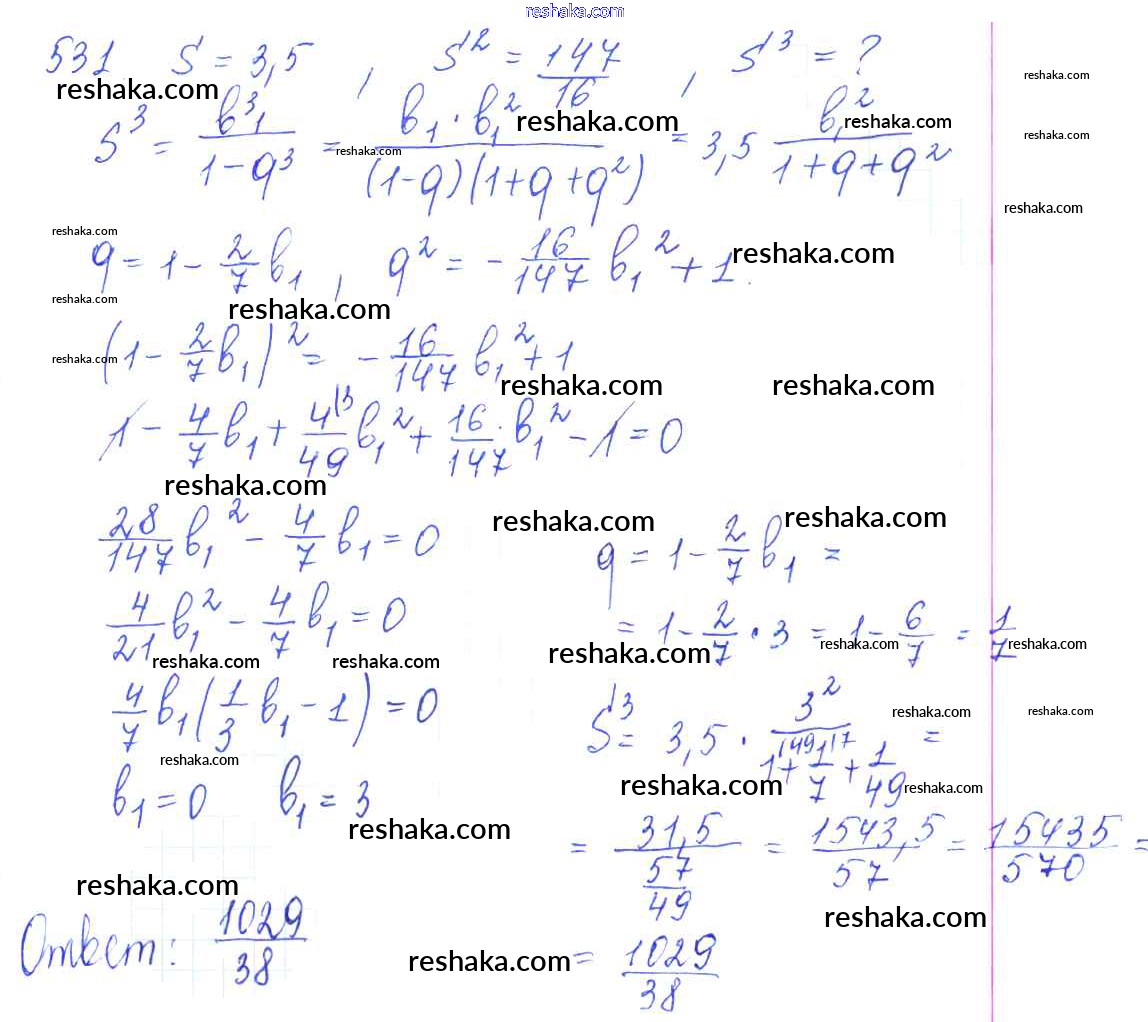 reshaka.com
531 S = 3,5 , S² = 147/16 , S³ = ?
reshaka.com
reshaka.com
S³ = b₁³/(1-q³) = b₁·b₁²/((1-q)(1+q+q²)) = 3,5 b₁²/(1+q+q²)
reshaka.com reshaka.com reshaka.com
reshaka.com
reshaka.com
reshaka.com
q = 1 - 2/7 b₁ , q² = - 16/147 b₁² + 1.
reshaka.com
reshaka.com
reshaka.com
(1 - 2/7 b₁)² = - 16/147 b₁² + 1
reshaka.com
reshaka.com reshaka.com
1 - 4/7 b₁ + 4|3/49 b₁² + 16/147 · b₁² - 1 = 0
reshaka.com
28/147 b₁² - 4/7 b₁ = 0
reshaka.com reshaka.com
4/21 b₁² - 4/7 b₁ = 0
reshaka.com reshaka.com
4/7 b₁(1/3 b₁ - 1) = 0
reshaka.com
b₁ = 0 b₁ = 3
reshaka.com
q = 1 - 2/7 b₁ =
= 1 - 2/7 · 3 = 1 - 6/7 = 1/7
reshaka.com reshaka.com reshaka.com
S³ = 3,5 · 3²/(1|49 + 1|7/7 + 1/49) =
reshaka.com reshaka.com
reshaka.com reshaka.com
= 31,5/(57/49) = 1543,5/57 = 15435/570 =
reshaka.com reshaka.com
= 1029/38
reshaka.com
Ответ: 1029/38